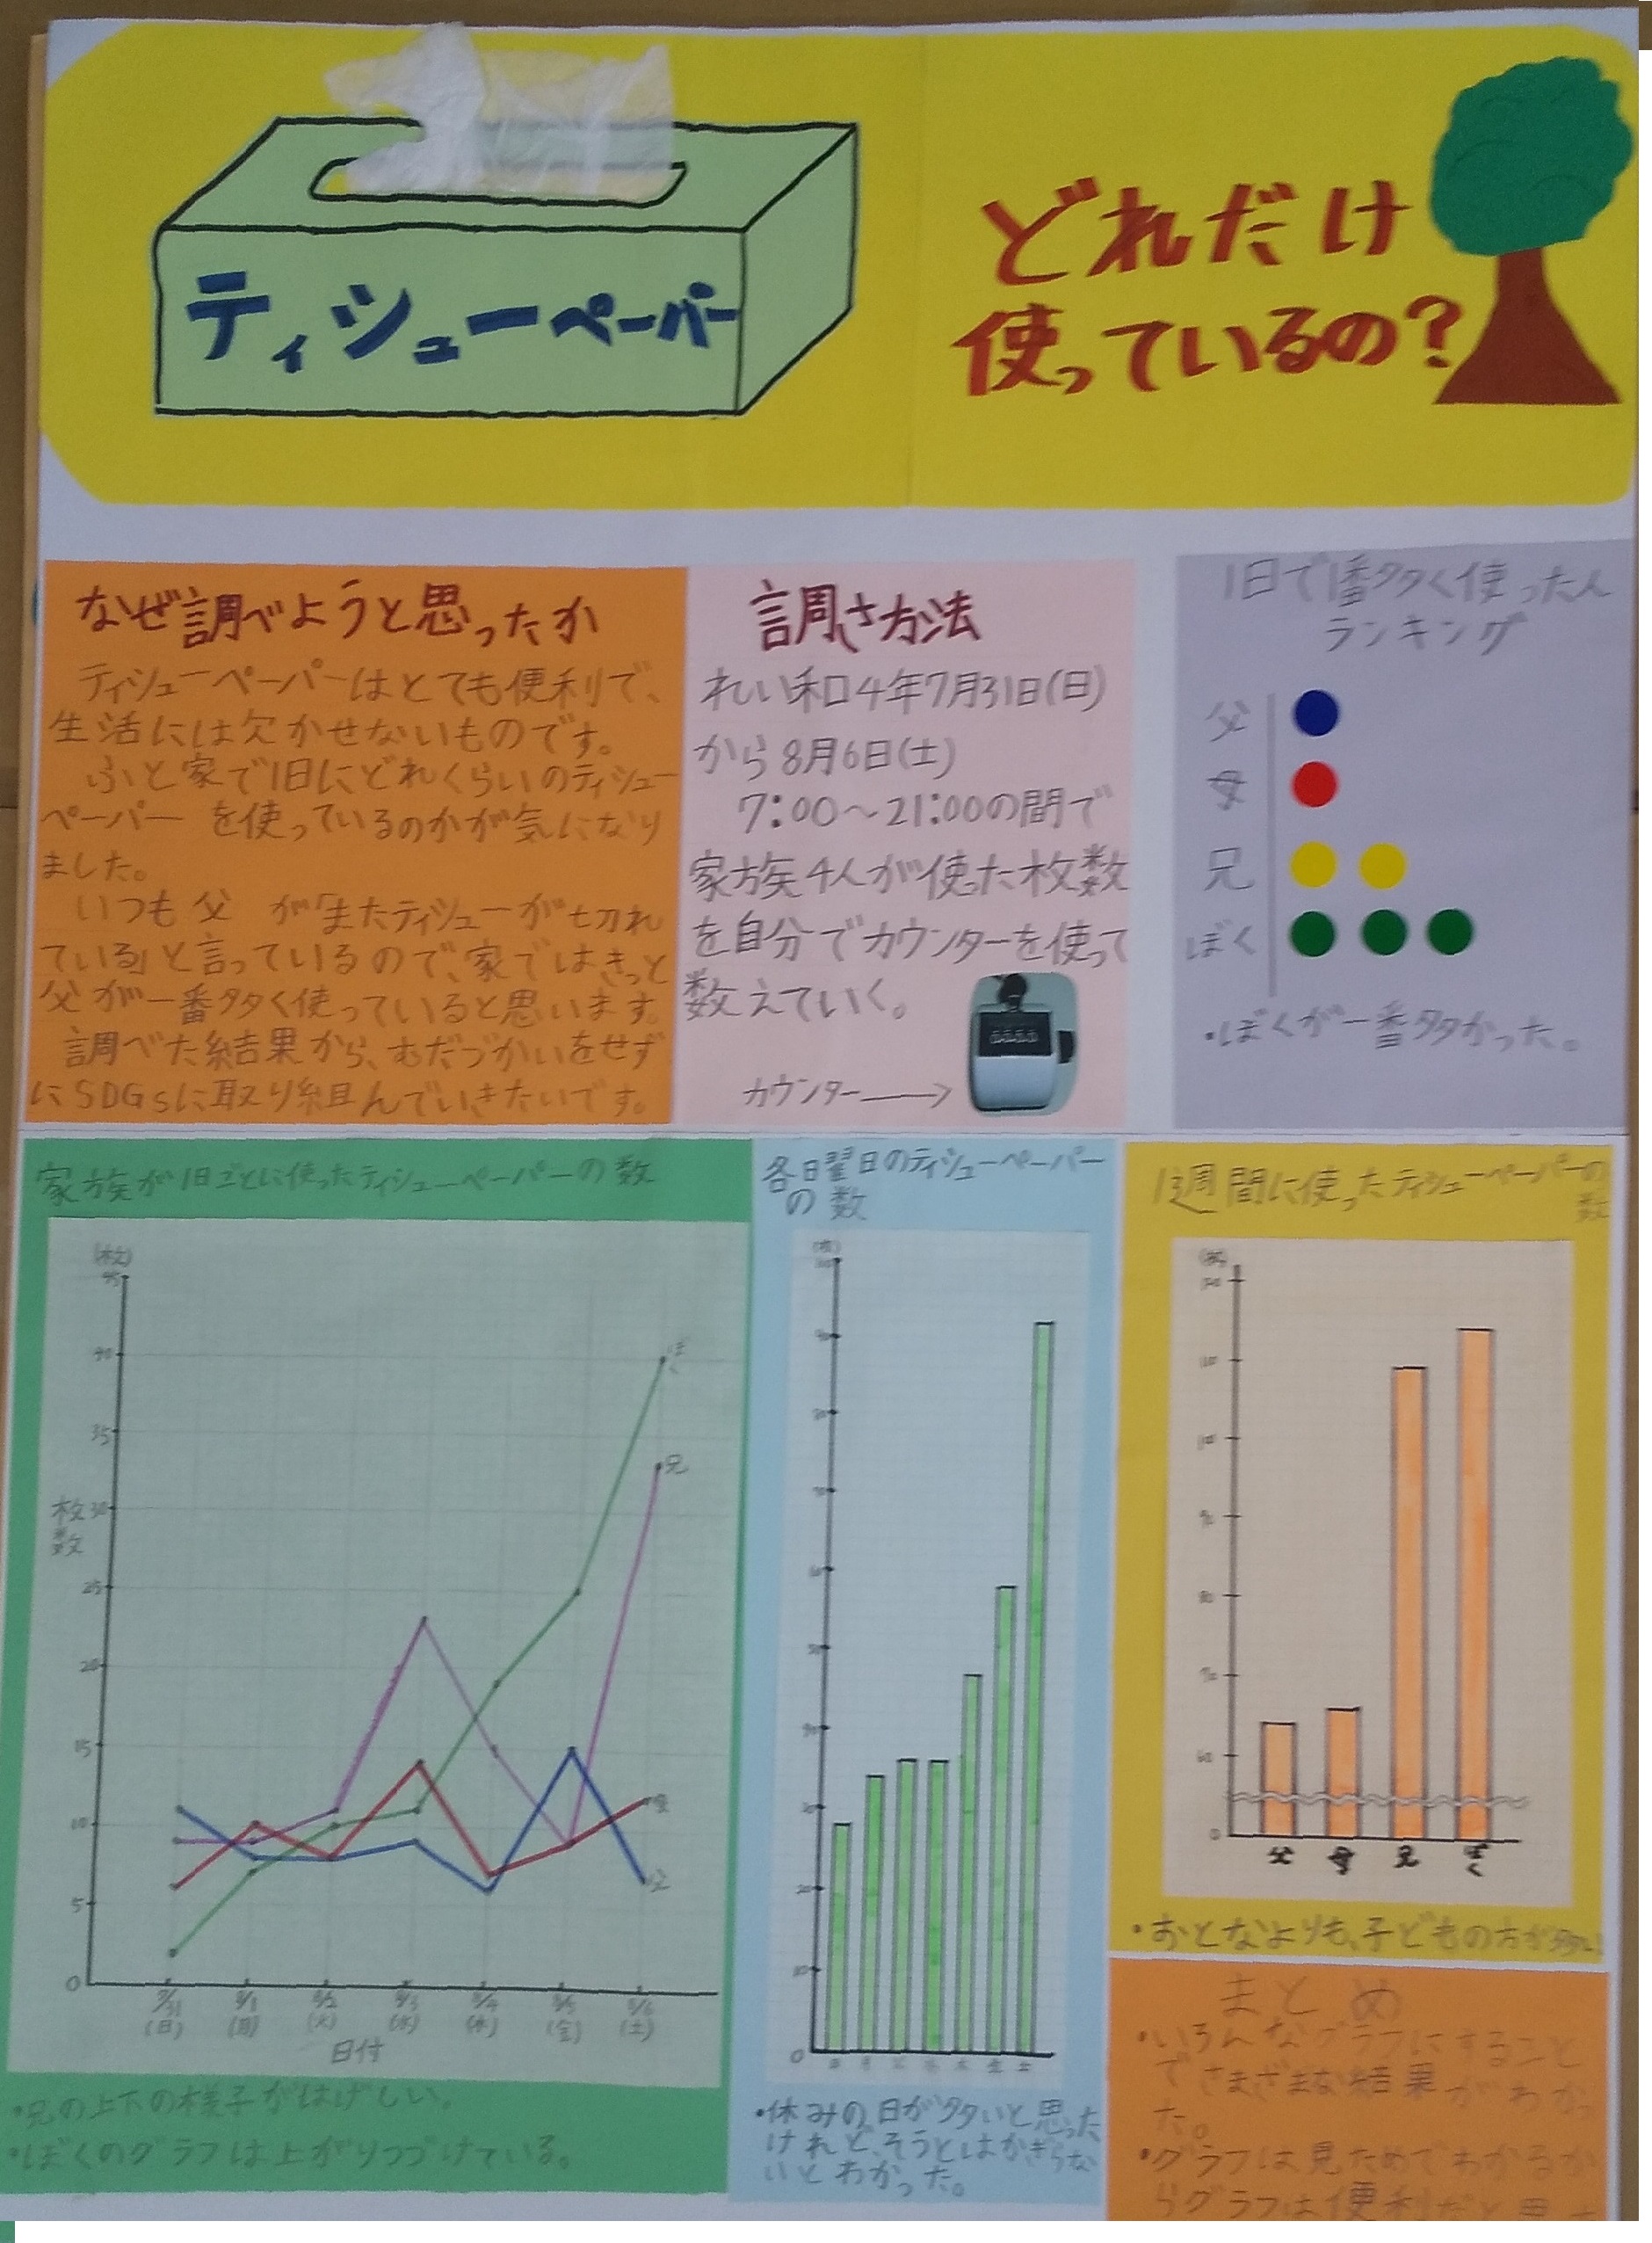 ティシューペーパー
どれだけ
使っているの?
なぜ調べようと思ったか
ティシューペーパーはとても便利で、
生活には欠かせないものです。
ふと家で1日にどれくらいのティシュー
ペーパー を使っているのかが気になり
ました。
いつも父 が「またティシューが切れ
ている」と言っているので、家ではきっと
父が一番多く使っていると思います。
調べた結果から、むだづかいをせず
にSDGsに取り組んでいきたいです。
調さ方法
れい和4年7月31日(日)
から8月6日(土)
7:00〜21:00の間で
家族4人が使った枚数
を自分でカウンターを使って
数えていく。
カウンター
1日で1番多く使った人
ランキング
父
母
兄
ぼく
・ぼくが一番多かった。
家族が1日ごとに使ったティシューペーパーの数
(枚)
45
40
35
30
25
20
15
10
5
0
枚数
ぼく
兄
母
父
7/31
8/1
8/2
8/3
8/4
8/5
8/6
(日)
(月)
(火)
(水)
(木)
(金)
(土)
日付
・兄の上下の様子がはげしい。
・ぼくのグラフは上がりつづけている。
各日曜日のティシューペーパー
の数
(枚)
90
80
70
60
50
40
30
20
10
0
・休みの日が多いと思った
けれど、そうとはかぎらな
いとわかった。
1週間に使ったティシューペーパーの
数
(枚)
80
70
60
0
父
母
兄
ぼく
・おとなよりも、子どもの方が多い
まとめ
・いろんなグラフにすること
でさまざまな結果がわかっ
た。
・グラフは見ためでわかるか
らグラフは便利だと思